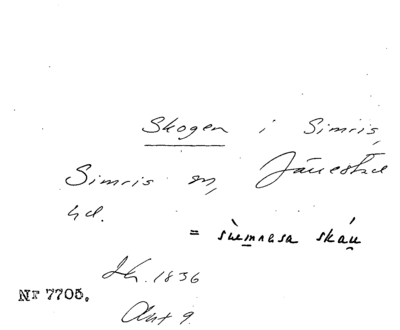 Skogen i Simris,
Simris sn, Järrestad
hd.
= sìemnesa skáu
Sk. 1836
Akt 9.
NF 7705.